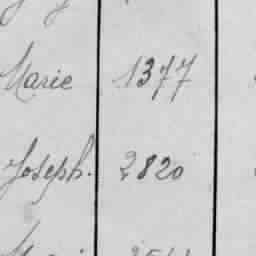 Marie 1377
Joseph. 2820